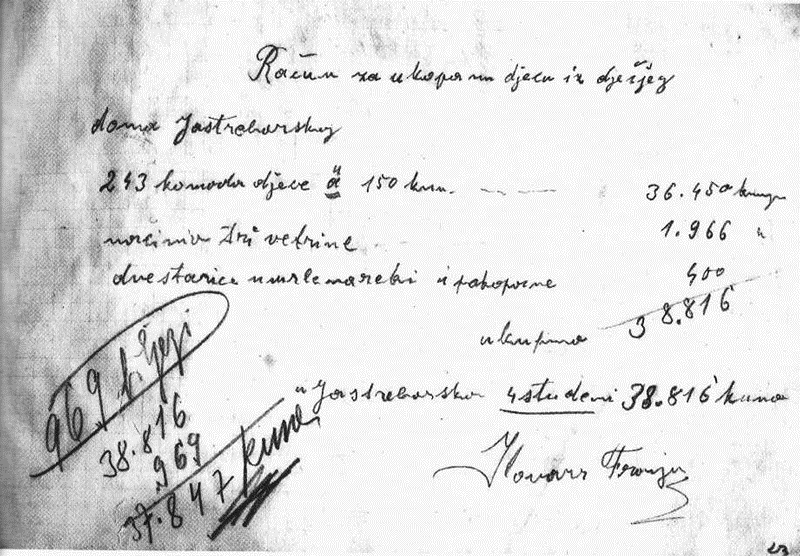 Račun za ukopanu djecu iz dječjeg
doma Jastrebarskog
243 komada djece à 150 kun. 36.450 kuna
1.966 "
načinio tri vetrine
dve starice umrle na rebi i pokopane 400
ukupno 38.816
u Jastrebarsko 4 studeni 38.816 kuna
Franjo
969
38.816
969
37.847 kuna